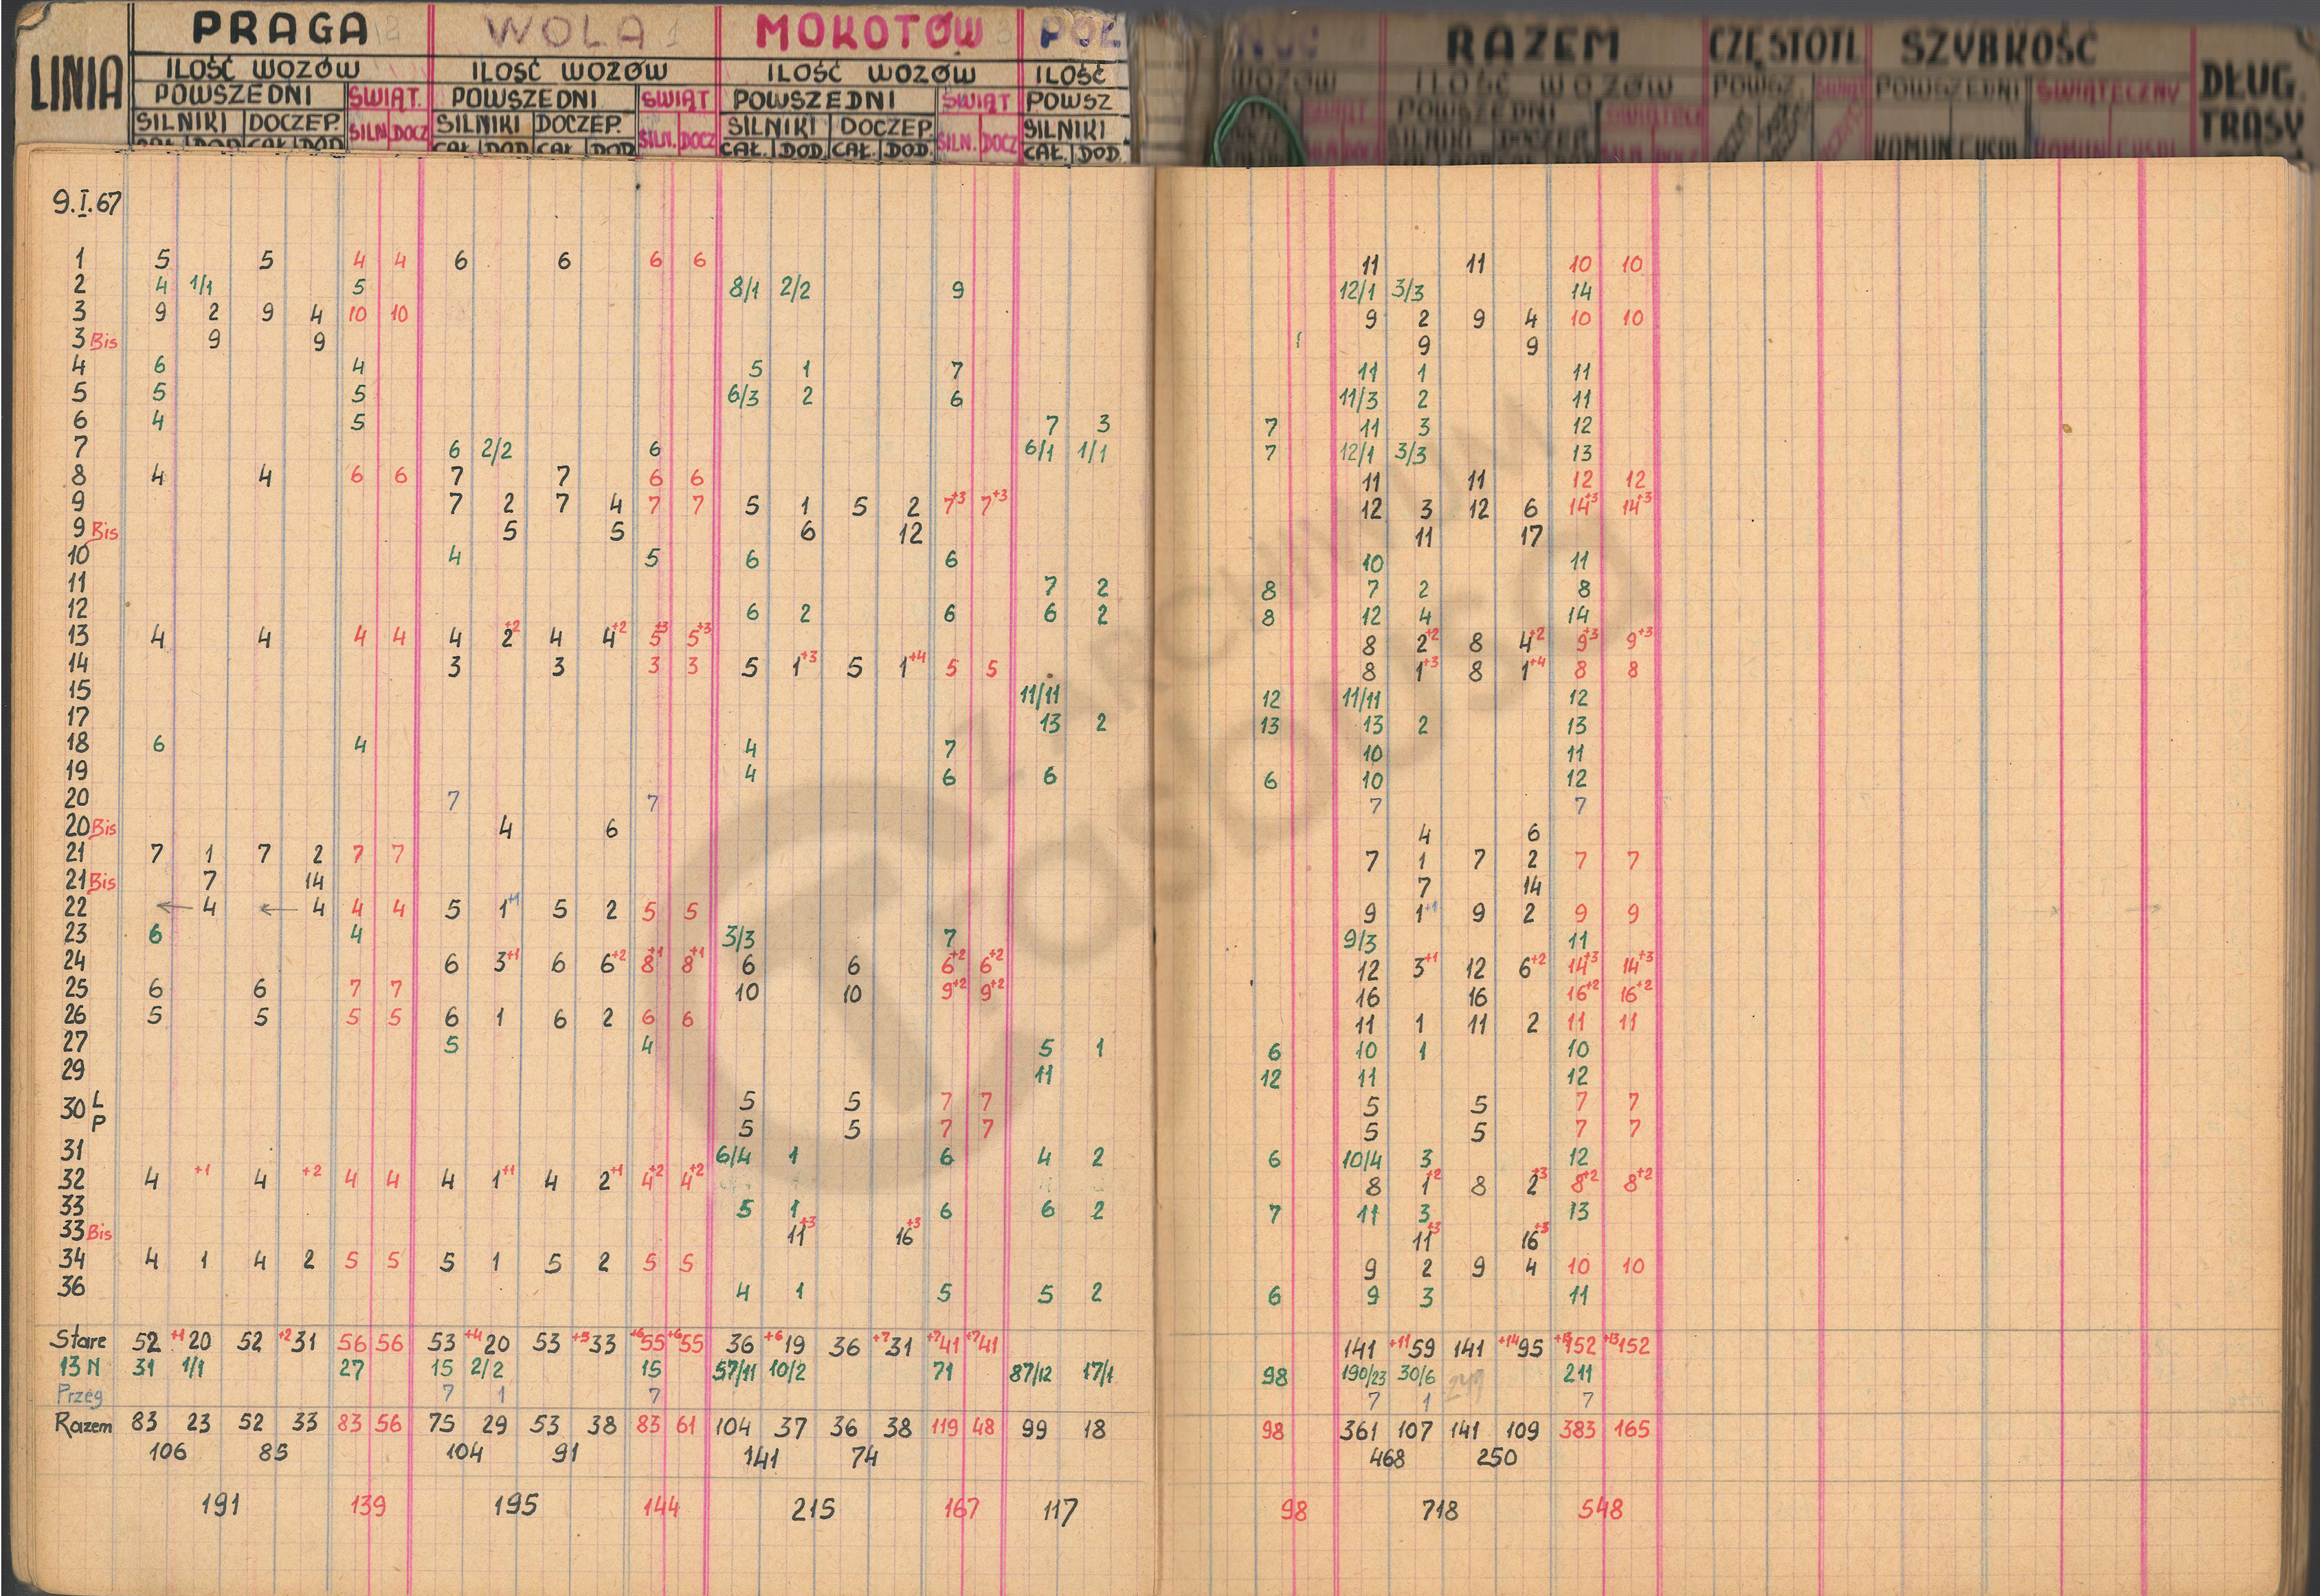 PRAGA WOLA MOKOTÓW PÓŁ NOC RAZEM CZĘSTOTL SZYBKOŚĆ
LINIA ILOŚĆ WOZÓW ILOŚĆ WOZÓW ILOŚĆ WOZÓW ILOŚĆ WOZÓW ILOŚĆ WOZÓW DŁUG. TRASY
POWSZEDNI ŚWIĄT. POWSZEDNI ŚWIĄT POWSZEDNI ŚWIĄT POWSZ POWSZEDNI POWSZ. ŚWIĄT POWSZEDNI ŚWIĄTECZNY
SILNIKI DOCZEP. SILN. DOCZ SILNIKI DOCZEP. SILN. DOCZ SILNIKI DOCZEP. SILN. DOCZ SILNIKI SILNIKI DOCZEP
CAŁ. DOD. CAŁ. DOD CAŁ. DOD. CAŁ. DOD CAŁ. DOD. CAŁ. DOD. CAŁ. DOD.
9.I.67
1 5 5 4 4 6 6 6 6 11 11 10 10
2 4 1/1 5 8/1 2/2 9 12/1 3/3 14
3 9 2 9 4 10 10 9 2 9 4 10 10
3 Bis 9 9 9 9
4 6 4 5 1 7 11 1 11
5 5 5 6/3 2 6 11/3 2 11
6 4 5 7 3 7 11 3 12
7 6 2/2 6 6/1 1/1 7 12/1 3/3 13
8 4 4 6 6 7 7 6 6 11 11 12 12
9 7 2 7 4 7 7 5 1 5 2 7+3 7+3 12 3 12 6 14+3 14+3
9 Bis 5 5 6 12 11 17
10 4 5 6 6 10 11
11 7 2 8 7 2 8
12 6 2 6 6 2 8 12 4 14
13 4 4 4 4 4 2+2 4 4+2 5+3 5+3 8 2+2 8 4+2 9+3 9+3
14 3 3 3 3 5 1+3 5 1+4 5 5 8 1+3 8 1+4 8 8
15 11/11 12 11/11 12
17 13 2 13 13 2 13
18 6 4 4 7 10 11
19 4 6 6 6 10 12
20 7 7 7 7
20 Bis 4 6 4 6
21 7 1 7 2 7 7 7 1 7 2 7 7
21 Bis 7 14 7 14
22 ← 4 ← 4 4 4 5 1+1 5 2 5 5 9 1+1 9 2 9 9
23 6 4 3/3 7 9/3 11
24 6 3+1 6 6+2 8+1 8+1 6 6 6+2 6+2 12 3+1 12 6+2 14+3 14+3
25 6 6 7 7 10 10 9+2 9+2 16 16 16+2 16+2
26 5 5 5 5 6 1 6 2 6 6 11 1 11 2 11 11
27 5 4 5 1 6 10 1 10
29 11 12 11 12
30 L 5 5 7 7 5 5 7 7
P 5 5 7 7 5 5 7 7
31 6/4 1 6 4 2 6 10/4 3 12
32 4 +1 4 +2 4 4 4 1+1 4 2+1 4+2 4+2 8 1+2 8 2+3 8+2 8+2
33 5 1 6 6 2 7 11 3 13
33 Bis 11+3 16+3 11+3 16+3
34 4 1 4 2 5 5 5 1 5 2 5 5 9 2 9 4 10 10
36 4 1 5 5 2 6 9 3 11
Stare 52 +1 20 52 +2 31 56 56 53 +4 20 53 +5 33 +6 55 +6 55 36 +6 19 36 +7 31 +7 41 +7 41 141 +11 59 141 +14 95 +13 152 +13 152
13 N 31 1/1 27 15 2/2 15 57/11 10/2 71 87/12 17/1 98 190/23 30/6 211
Przeg 7 1 7 7 1 7
Razem 83 23 52 33 83 56 75 29 53 38 83 61 104 37 36 38 119 48 99 18 98 361 107 141 109 383 165
106 85 104 91 141 74 468 250
191 139 195 144 215 167 117 98 718 548